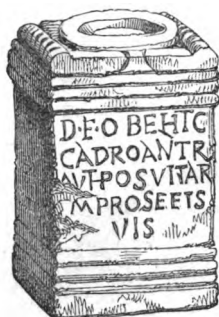 DEO BEHTC
CADROANTR
AVTPOSVITAR
MPROSEETS
VIS